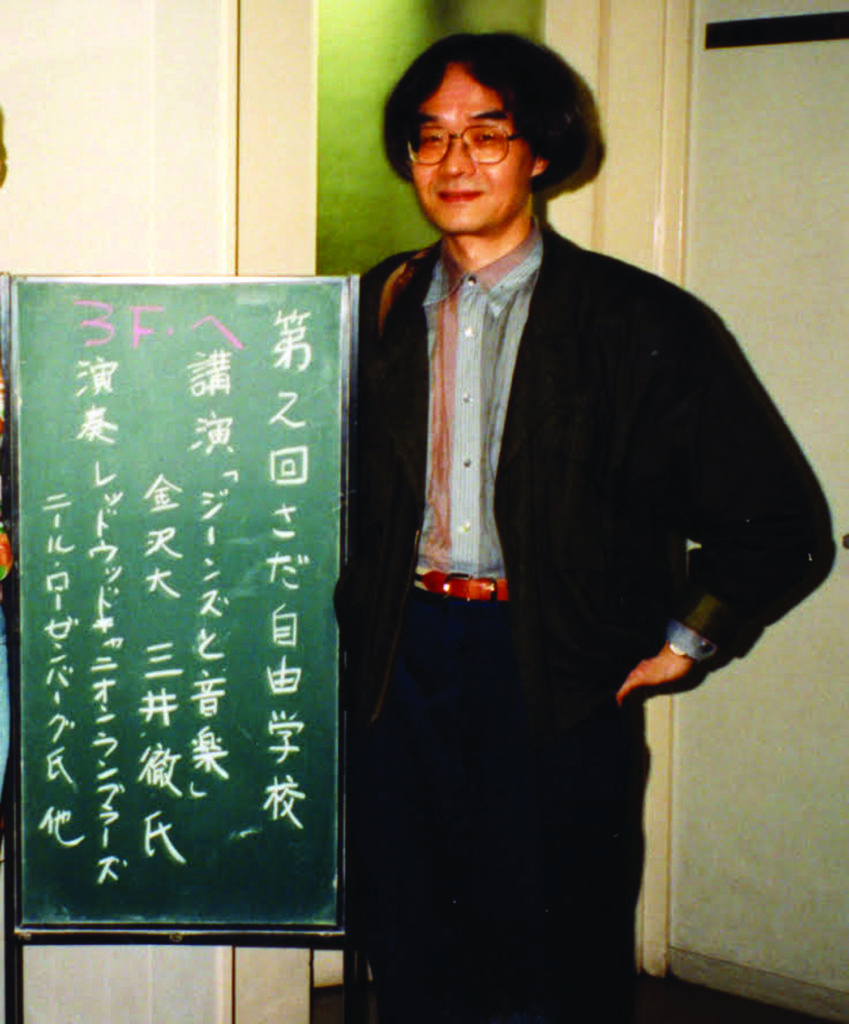 3F.へ
第2回さだ自由学校
講演「ジーンズと音楽」
金沢大 三井徹氏
演奏 レッドウッドキャニオンランブラーズ
ニール・ローゼンバーグ氏 他